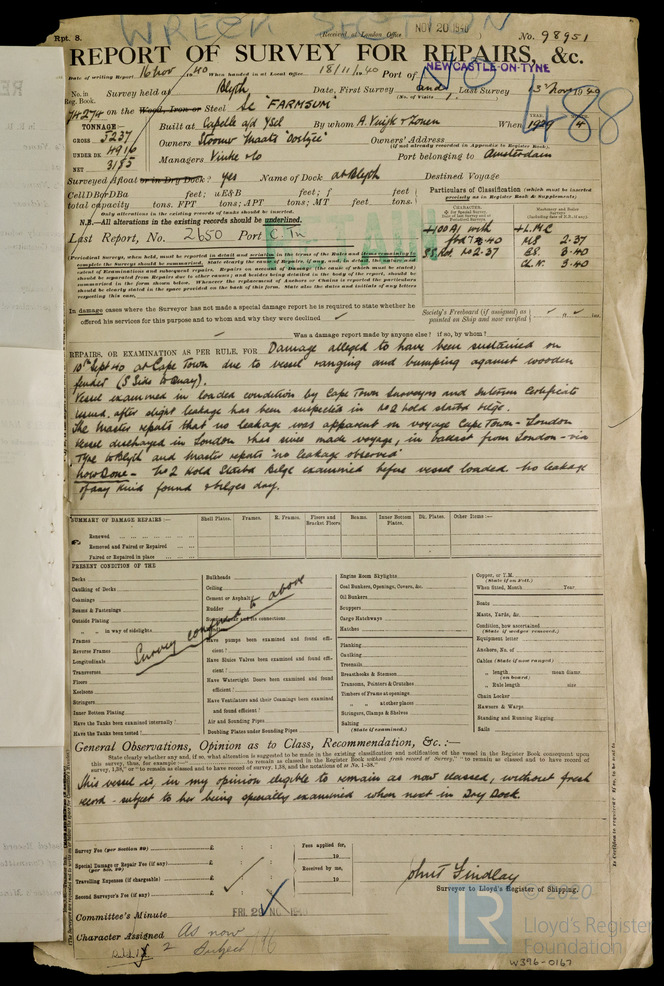 WRECK SECTION
Rpt. 8.
(Received at London Office NOV 20 1940)
No. 98951
REPORT OF SURVEY FOR REPAIRS, &c.
Date of writing Report 16 Nov 1940 When handed in at Local Office 18/11/1940 Port of NEWCASTLE-ON-TYNE
No. in Reg. Book.
Survey held at Blyth Date, First Survey and Last Survey 13 Nov 1940
(No. of Visits 1)
74274 on the Wood, Iron or Steel Sc "FARMSUM"
488
TONNAGE:—
GROSS 5237
UNDER DK. 4916
NET 3185
Built at Capelle a/d Ysel By whom A. Vuijk & Zonen When 1929 4
YEAR.
Owners Stoomv Maats "Oostzee" Owners' Address
(if not already recorded in Appendix to Register Book.)
Managers Vinke & Co Port belonging to Amsterdam
Surveyed Afloat or in Dry Dock? Yes Name of Dock at Blyth Destined Voyage
Cell DBor DBa feet; uE&B feet; f feet
total capacity tons. FPT tons; APT tons; MT feet tons.
Only alterations in the existing records of tanks should be inserted.
N.B.—All alterations in the existing records should be underlined.
Last Report, No. 2650 Port C. Tn
RETAIN
Particulars of Classification (which must be inserted precisely as in Register Book & Supplements)
+100 A1 with
+L.M.C.
MS 2.37
BS. 3.40
(Periodical Survey, when held, must be reported in detail and seriatim in the terms of the Rules and
complete the Survey should be summarized. State clearly the cause of Repairs, if any, and in detail the nature and
extent of Examinations and subsequent repairs. Repairs on account of Damage (the cause of which must be stated)
should be separated from Repairs due to other causes; and besides being detailed in the body of the report, should be
summarized in the form shown below. Wherever the replacement of Anchors or Chains is reported the particulars
should be clearly stated in the space provided on the back of this form. State also the dates and initials of any letters
respecting this case.
In damage cases where the Surveyor has not made a special damage report he is required to state whether he
offered his services for this purpose and to whom and why they were declined
Society's Freeboard (if assigned) as painted on Ship and now verified
Was a damage report made by anyone else? if so, by whom?
REPAIRS, OR EXAMINATION AS PER RULE, FOR Damage alleged to have been sustained on
10th Sept 40 at Cape Town due to vessel ranging and bumping against wooden
fender (S Side to Quay).
Vessel examined in loaded condition by Cape Town Surveyors and Interim Certificate
issued, after slight leakage has been suspected in No 2 hold starbd bilge.
The Master reports that no leakage was apparent on voyage Cape Town - London
Vessel discharged in London & has since made voyage, in ballast from London - via
Tyne to Blyth and Master reports "no leakage observed"
Now Done - No 2 Hold Starbd Bilge examined before vessel loaded - No leakage
of any kind found & bilges dry.
SUMMARY OF DAMAGE REPAIRS:—
Shell Plates. Frames. R. Frames. Floors and Bracket Floors Beams. Inner Bottom Plates. Dk. Plates. Other Items:—
Renewed
Removed and Faired or Repaired
Faired or Repaired in place
PRESENT CONDITION OF THE
Decks
Caulking of Decks
Coamings
Beams & Fastenings
Outside Plating
" " in way of sidelights
Frames
Reverse Frames
Longitudinals
Transverses
Floors
Keelsons
Stringers
Inner Bottom Plating
Have the Tanks been examined internally?
Have the Tanks been tested?
Survey confined to above
Bulkheads
Ceiling
Cement or Asphalt
Rudder
Have pumps been examined and found efficient?
Have Sluice Valves been examined and found efficient?
Have Watertight Doors been examined and found efficient?
Have Ventilators and their Coamings been examined and found efficient?
Air and Sounding Pipes
Doubling Plates under Sounding Pipes
Engine Room Skylights
Coal Bunkers, Openings, Covers, &c.
Oil Bunkers
Scuppers
Cargo Hatchways
Hatches
Planking
Caulking
Treenails
Breasthooks & Stemson
Transoms, Pointers & Crutches
Timbers of Frame at openings
" " at other places
Stringers, Clamps & Shelves
Salting
(State if examined.)
Copper, or Y.M.
(State if on Felt.)
When fitted, Month Year
Boats
Masts, Yards, &c.
Condition, how ascertained
(State if wedges removed.)
Equipment letter
Anchors, No. of
Cables (State if now ranged)
" length mean diamr
(on board)
" Rule length size
Chain Locker
Hawsers & Warps
Standing and Running Rigging
Sails
General Observations, Opinion as to Class, Recommendation, &c.:—
State clearly whether any and, if so, what alteration is suggested to be made in the existing classification and notification of the vessel in the Register Book consequent upon
This vessel is, in my opinion eligible to remain as now classed, without fresh
record - subject to her being specially examined when next in Dry Dock.
Survey Fee (per Section 29) £
Special Damage or Repair Fee (if any) £
(per Sec. 29)
Travelling Expenses (if chargeable) £
Second Surveyor's Fee (if any) £
Fees applied for,
19
Received by me,
19
Surveyor to Lloyd's Register of Shipping.
Committee's Minute FRI. 29 NOV 1940
Character Assigned As now
Subject
© 2020
LR
Lloyd's Register
Foundation
W396-0167